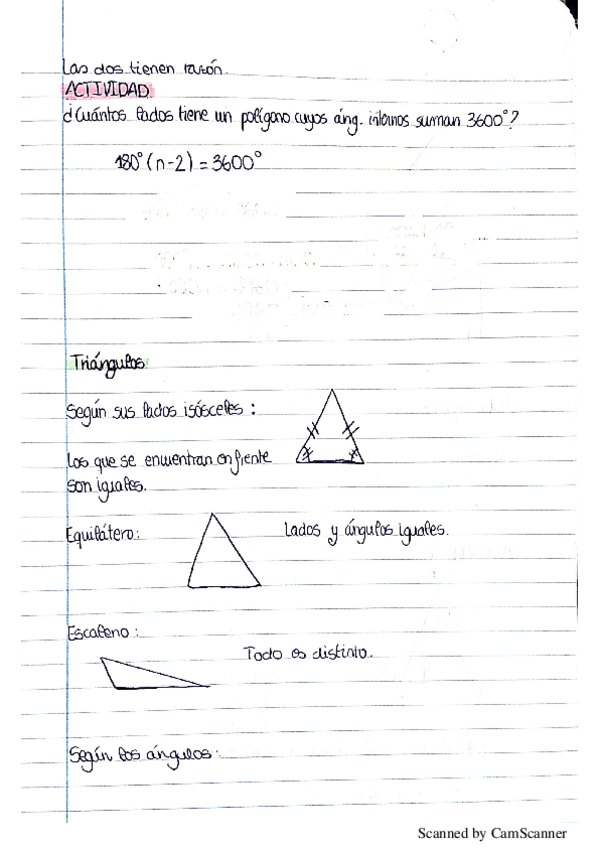 Las dos tienen razón.
ACTIVIDAD.
¿Cuántos lados tiene un polígono cuyos áng. internos suman 3600°?
180° (n-2) = 3600°
Triángulos
Según sus lados isósceles :
Los que se encuentran enfrente
son iguales.
Equilátero:
Lados y ángulos iguales.
Escaleno :
Todo es distinto.
Según los ángulos :
Scanned by CamScanner